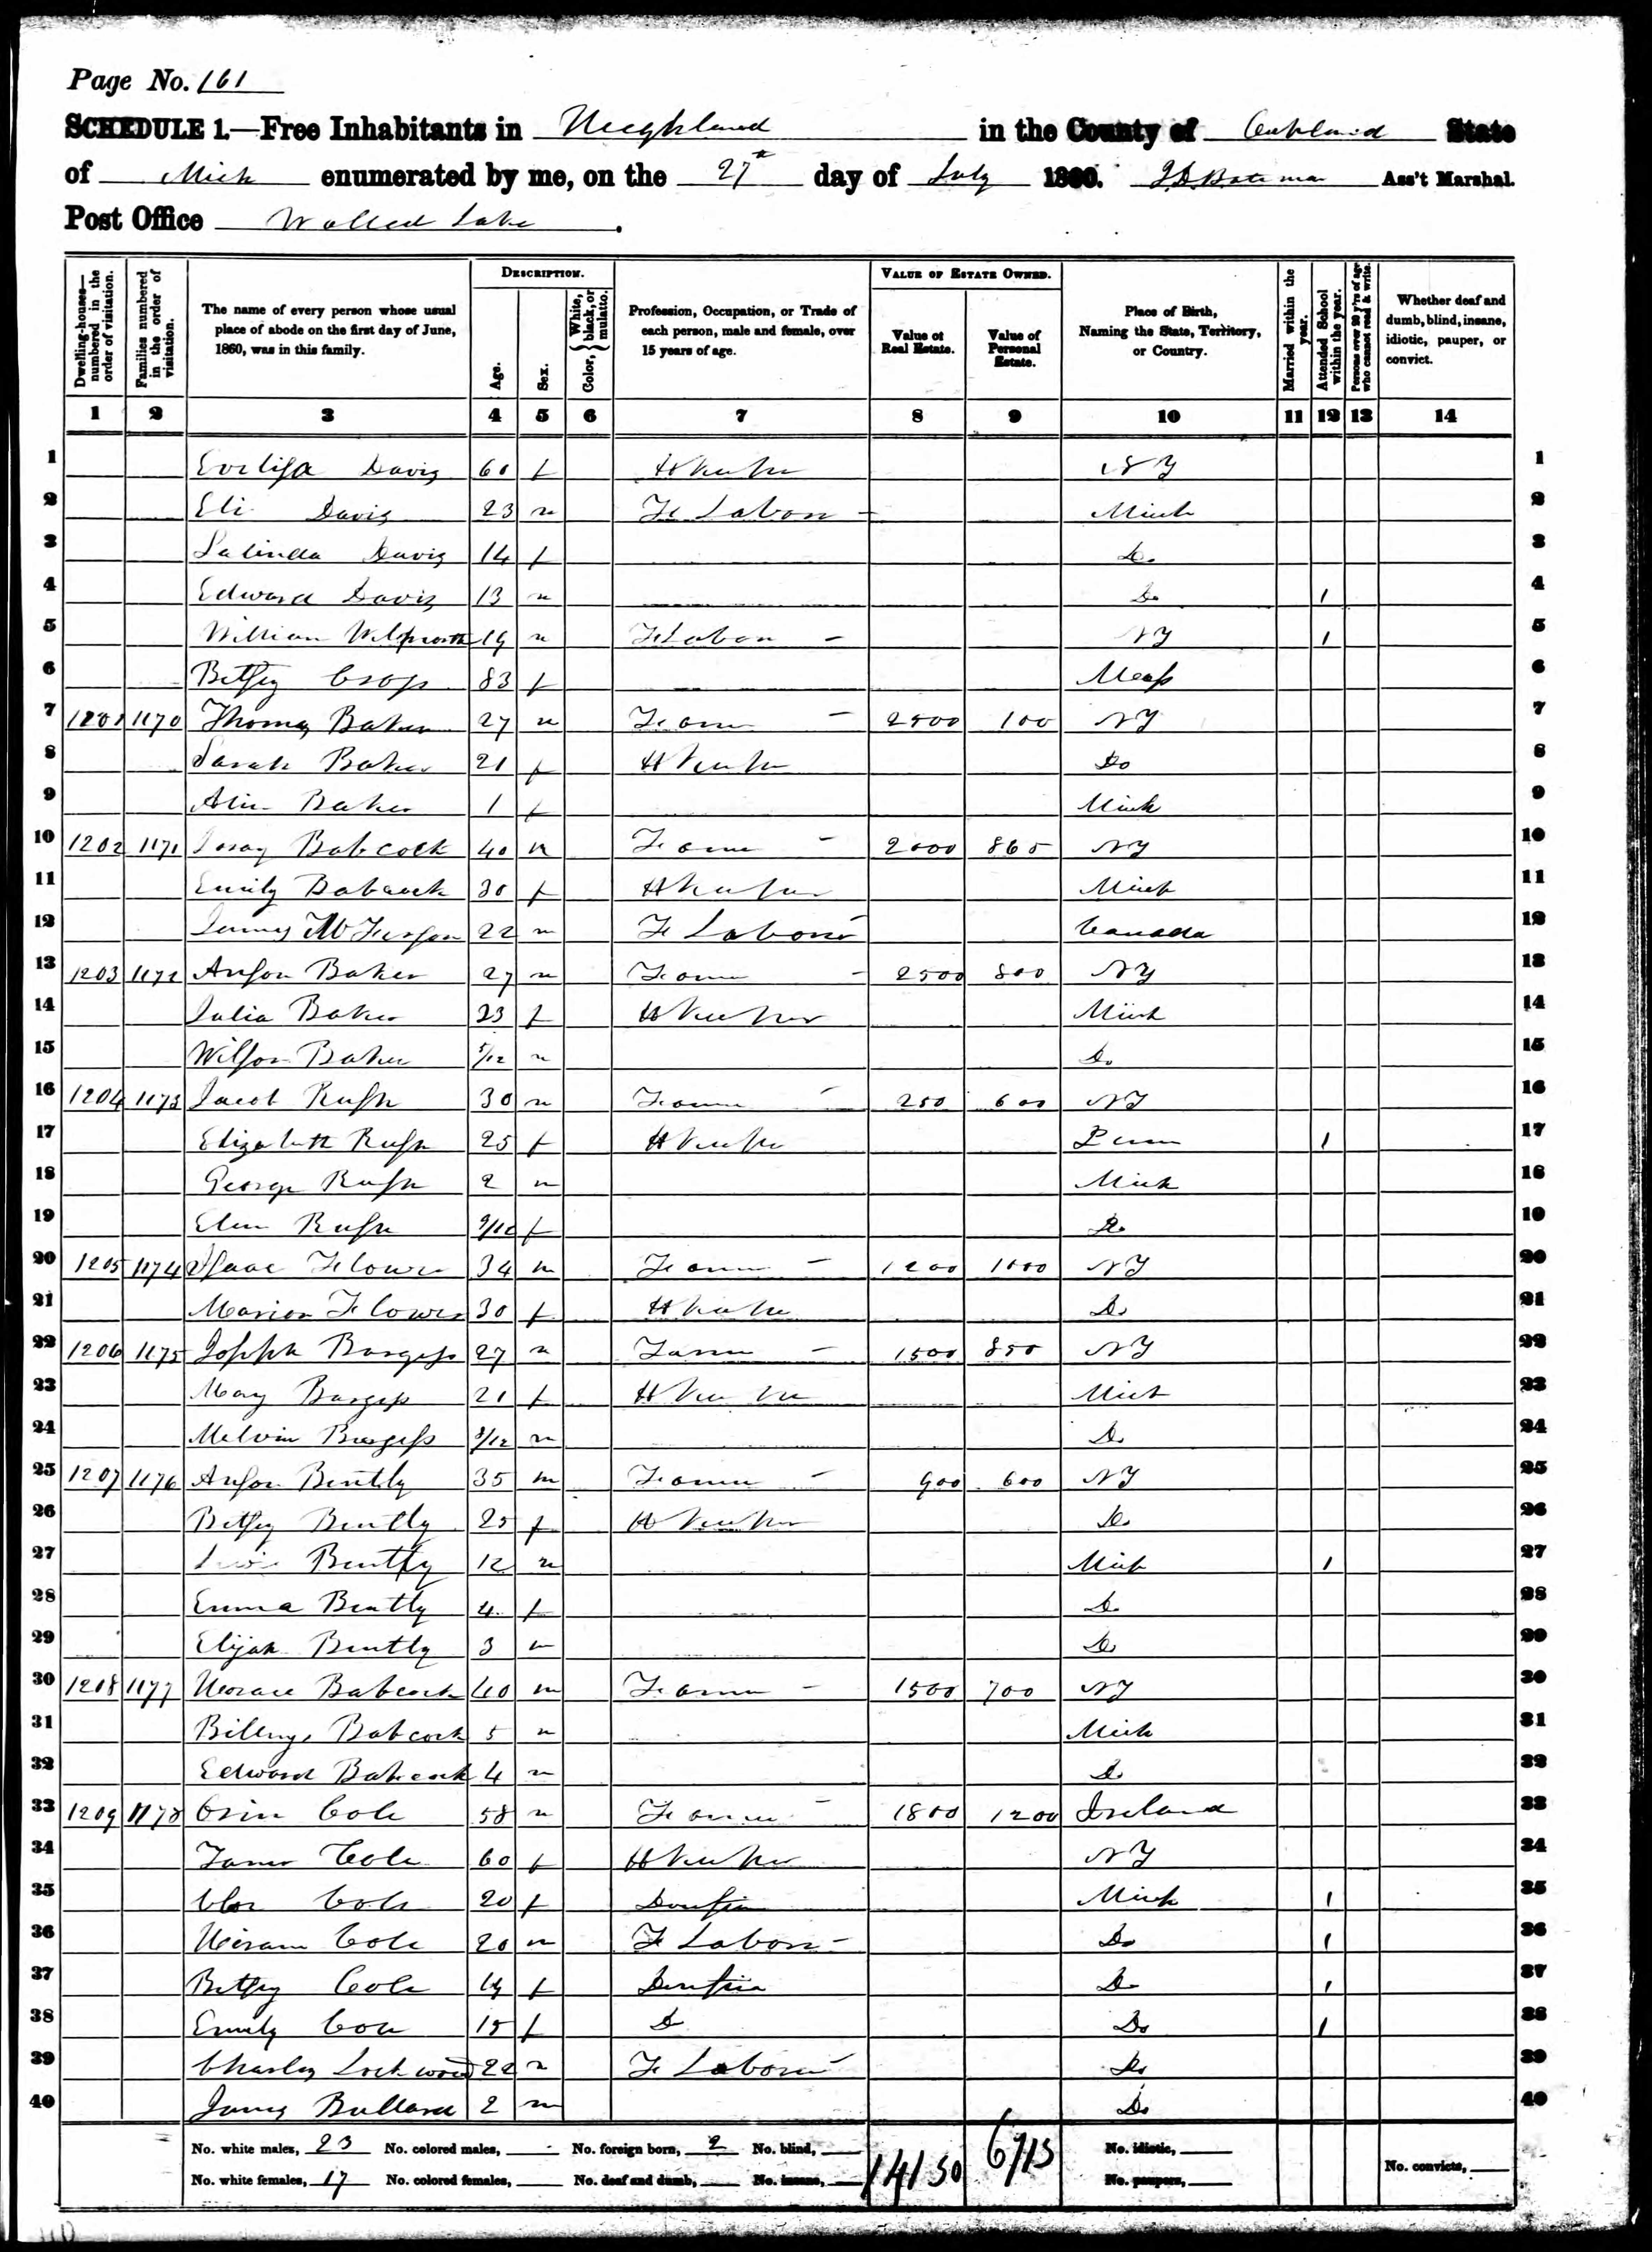 Page No. 161
SCHEDULE 1.—Free Inhabitants in Highland in the County of Oakland State
of Mich enumerated by me, on the 27th day of July 1860. Bateman Ass't Marshal.
Post Office Walled Lake.
Dwelling-houses—numbered in the order of visitation.
Families numbered in the order of visitation.
The name of every person whose usual place of abode on the first day of June, 1860, was in this family.
DESCRIPTION.
Age.
Sex.
Color, {White, black, or mulatto.
Profession, Occupation, or Trade of each person, male and female, over 15 years of age.
VALUE OF ESTATE OWNED.
Value of Real Estate.
Value of Personal Estate.
Place of Birth, Naming the State, Territory, or Country.
Married within the year.
Attended School within the year.
Persons over 20 y'rs of age who cannot read & write.
Whether deaf and dumb, blind, insane, idiotic, pauper, or convict.
1 2 3 4 5 6 7 8 9 10 11 12 13 14
1 Davis 60 f H Keeper NY 1
2 Eli Davis 23 m F Labor - Mich 2
3 Davis 14 f Do 3
4 Edward Davis 13 m Do 1 4
5 William 19 m F Labor - NY 1 5
6 Betsey 83 f Mass 6
7 1201 1170 Thomas Baker 27 m Farmer - 2500 100 NY 7
8 Sarah Baker 21 f H Keeper Do 8
9 Baker 1 f Mich 9
10 1202 1171 Babcock 40 m Farmer - 2000 865 NY 10
11 Emily Babcock 30 f H Keeper Mich 11
12 James 22 m F Labor - Canada 12
13 1203 1172 Anson Baker 27 m Farmer - 2500 800 NY 13
14 Julia Baker 23 f H Keeper Mich 14
15 Wilson Baker 5/12 m Do 15
16 1204 1173 Jacob Rush 30 m Farmer - 250 600 NY 16
17 Elizabeth Rush 25 f H Keeper Penn 1 17
18 George Rush 2 m Mich 18
19 Rush 9/12 f Do 19
20 1205 1174 Isaac Flower 34 m Farmer - 1200 1000 NY 20
21 Marion Flower 30 f H Keeper Do 21
22 1206 1175 Joseph Burgess 27 m Farmer - 1500 850 NY 22
23 Mary Burgess 21 f H Keeper Mich 23
24 Melvin Burgess m Do 24
25 1207 1176 Anson Bently 35 m Farmer - 900 600 NY 25
26 Betsey Bently 25 f H Keeper Do 26
27 Bently 12 m Mich 1 27
28 Emma Bently 4 f Do 28
29 Elijah Bently 3 m Do 29
30 1208 1177 Horace Babcock 40 m Farmer - 1500 700 NY 30
31 Billings Babcock 5 m Mich 31
32 Edward Babcock 4 m Do 32
33 1209 1178 Orin Cole 58 m Farmer - 1800 1200 Ireland 33
34 Cole 60 f H Keeper NY 34
35 Cole 20 f Mich 1 35
36 Hiram Cole 20 m F Labor - Do 1 36
37 Betsey Cole f Do 1 37
38 Emily Cole 15 f Do Do 1 38
39 Charles Lockwood 22 m F Labor - Do 39
40 James Bullard 2 m Do 40
No. white males, 23 No. colored males, No. foreign born, 2 No. blind, 14150 6715 No. idiotic,
No. white females, 17 No. colored females, No. deaf and dumb, No. insane, No. paupers, No. convicts,